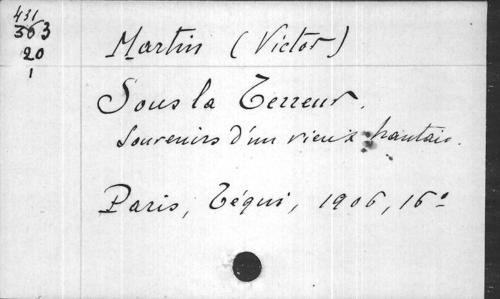 431
363
20
1
Martin (Victor)
Sous la Terreur.
Souvenirs d'un vieux nantais.
Paris, Téqui, 1906, 16º